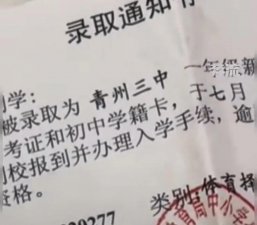 录取通知
学：
被录取为 青州三中 一年级新
考证和初中学籍卡，于七月
校报到并办理入学手续，逾
资格。
类别：体育择
0277